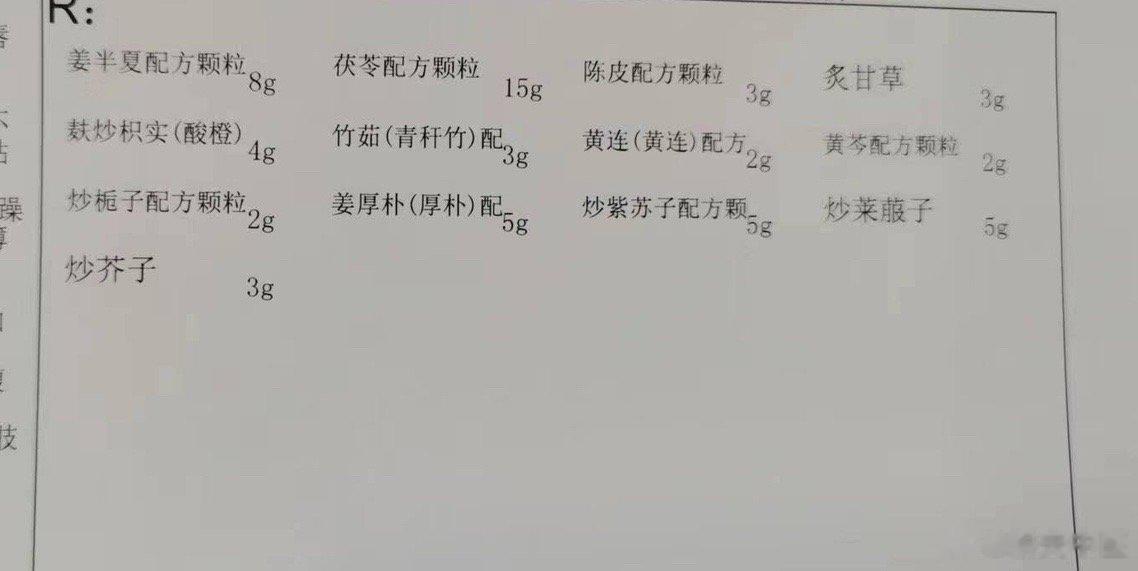 R:
姜半夏配方颗粒 8g 茯苓配方颗粒 15g 陈皮配方颗粒 3g 炙甘草 3g
麸炒枳实(酸橙) 4g 竹茹(青秆竹)配 3g 黄连(黄连)配方 2g 黄芩配方颗粒 2g
炒栀子配方颗粒 2g 姜厚朴(厚朴)配 5g 炒紫苏子配方颗 5g 炒莱菔子 5g
炒芥子 3g
躁
技